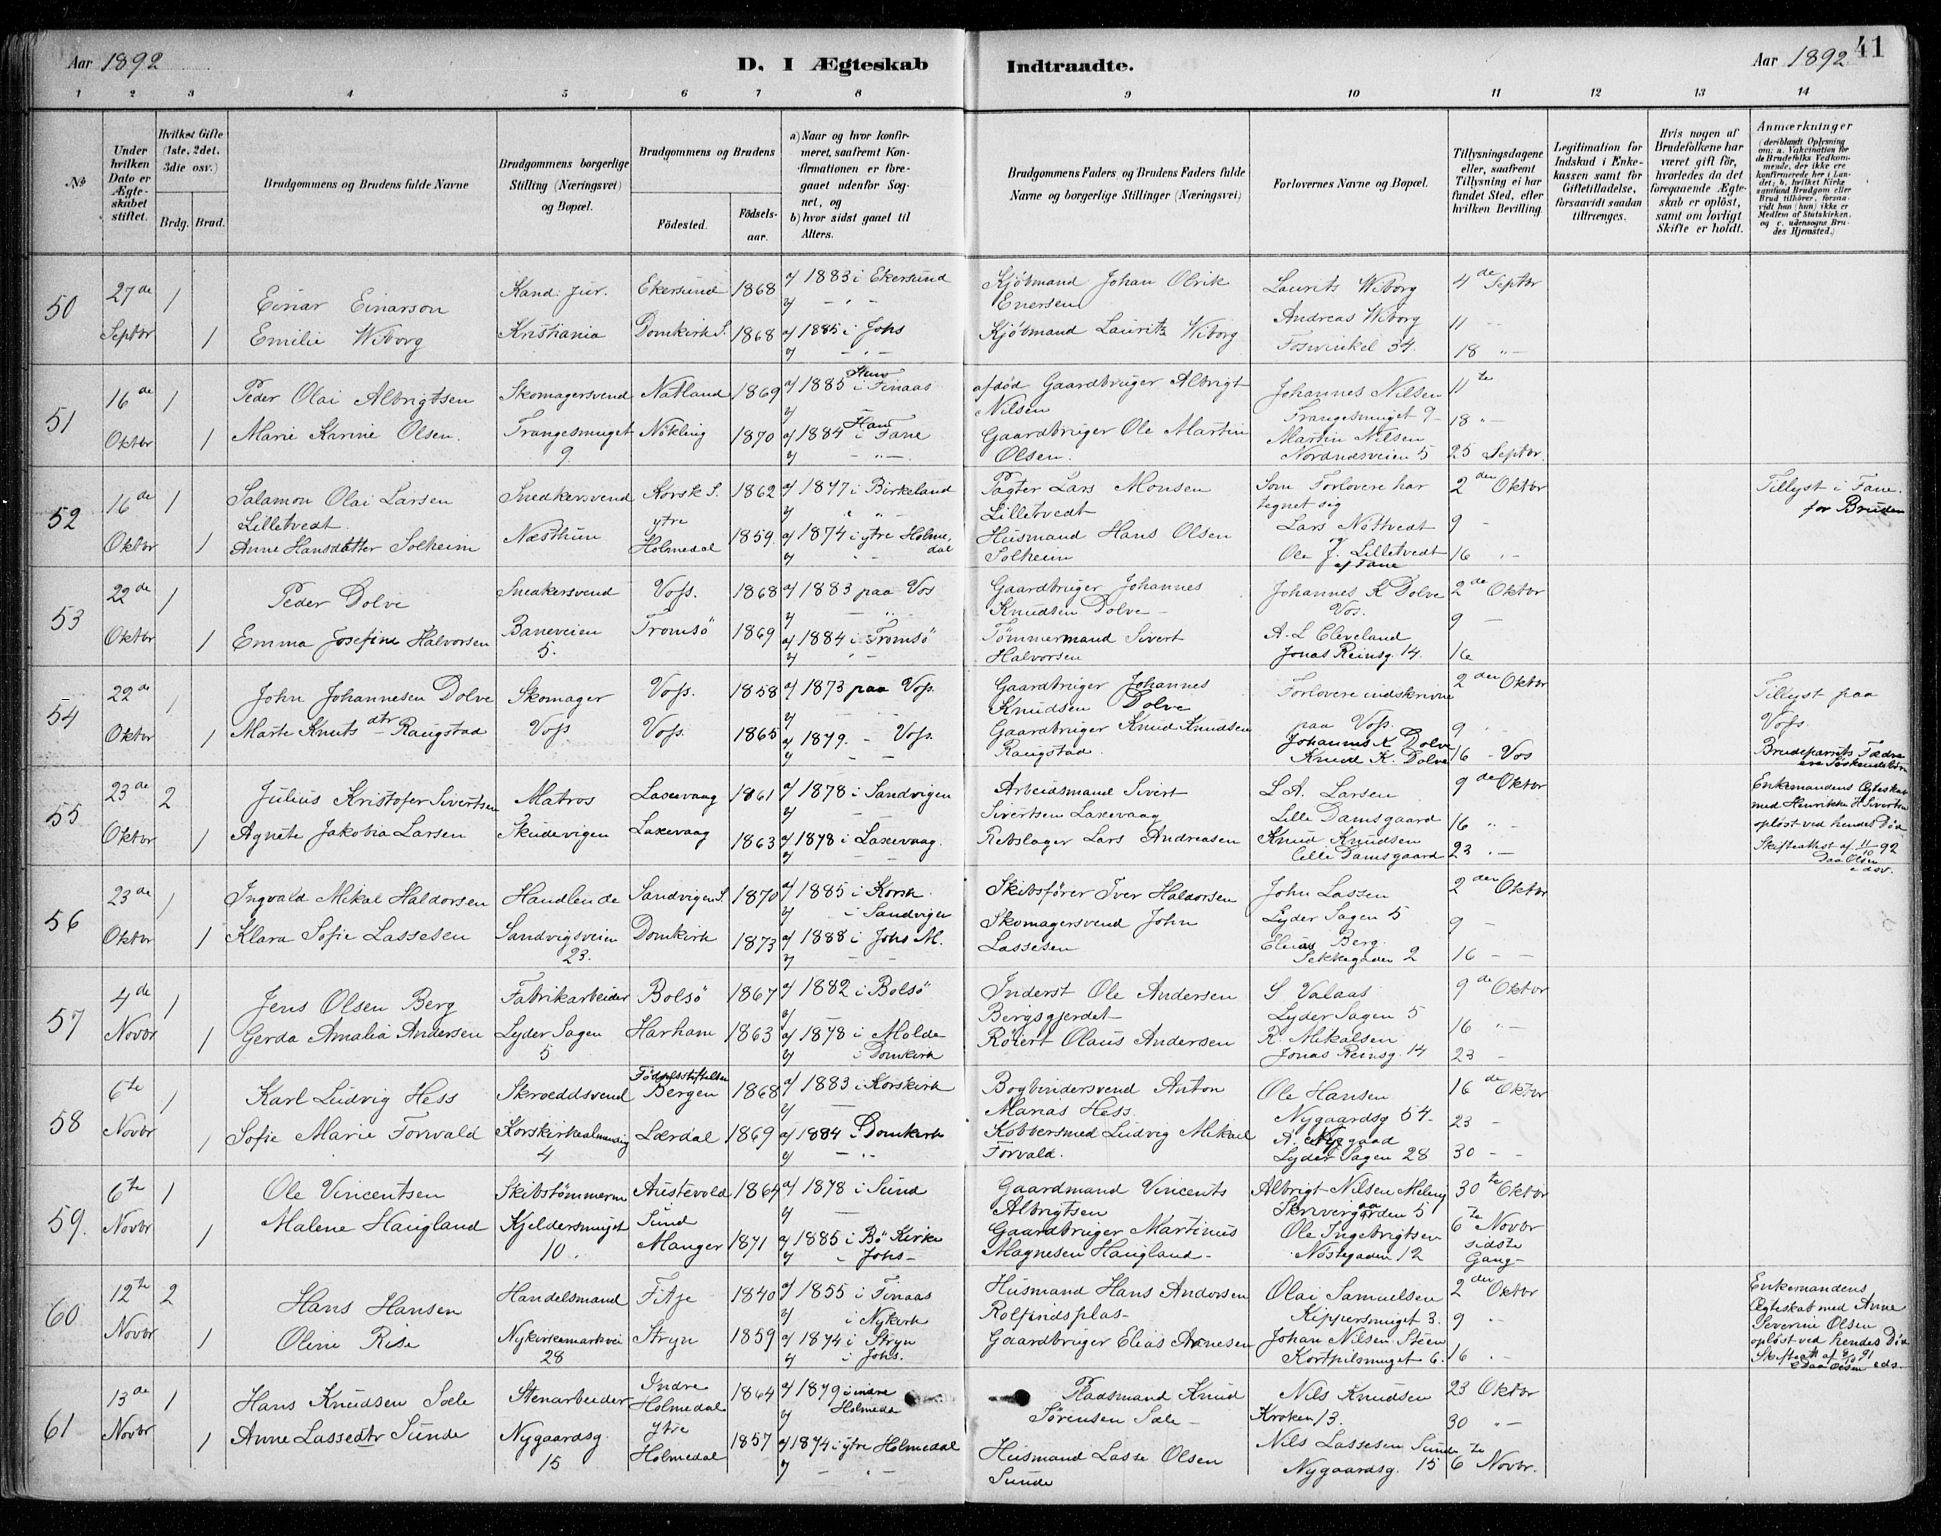 Aar 1892 D. I Ægteskab Indtraadte. Aar 1892 41
1 2 3 4 5 6 7 8 9 10 11 12 13 14
№
Under hvilken Dato er Ægteskabet stiftet.
Hvilket Gifte (1ste, 2det, 3die osv.)
Brdg. Brud.
Brudgommens og Brudens fulde Navne
Brudgommens borgerlige Stilling (Næringsvei) og Bopæl.
Brudgommens og Brudens
Födested. Födselsaar.
a) Naar og hvor konfirmeret, saafremt Konfirmationen er foregaaet udenfor Sognet, og
b) hvor sidst gaaet til Alters.
Brudgommens Faders og Brudens Faders fulde Navne og borgerlige Stillinger (Næringsvei)
Forlovernes Navne og Bopæl.
Tillysningsdagene eller, saafremt Tillysning ei har fundet Sted, efter hvilken Bevilling.
Legitimation for Indskud i Enkekassen samt for Giftetilladelse, forsaavidt saadan tiltrænges.
Hvis nogen af Brudefolkene har været gift för, hvorledes da det foregaaende Ægteskab er oplöst, samt om lovligt Skifte er holdt.
Anmærkninger (deriblandt Oplysning om: a. Vakcination for de Brudefolks Vedkommende, der ikke ere konfirmerede her i Landet; b. hvilket Kirkesamfund Brudgom eller Brud tilhörer, forsaavidt han (hun) ikke er Medlem af Statskirken, og c. udensogns Brudes Hjemsted.)
50 27de 1 Einar Einarson Kand. jur. Ekersund 1868 a) 1883 i Ekersund Kjöbmand Johan Olrik Enersen Laurits Wiborg 4de Septbr
Septbr 1 Emilie Wiborg Kristiania Domkirk S. 1868 a) 1885 i Johs Kjöbmand Lauritz Wiborg Andreas Wiborg Foswinkel 34 11 18
51 16de 1 Peder Olai Albrigtsen Skomagersvend Natland 1869 a) 1885 i Finaas afdöd Gaardbruger Albrigt Nilsen Johannes Nilsen Trangesmuget 9 11te
Oktbr 1 Marie Karine Olsen. Trangesmuget 9 Nökling 1870 a) 1884 i Fane Gaardbruger Ole Martin Olsen. Martin Nilsen Nordnæsveien 5 18 25 Septbr.
52 16de 1 Salamon Olai Larsen Lilletvedt. Snedkersvend Korsk S. 1862 a) 1877 i Birkeland Pagter Lars Monsen Lilletvedt Som Forlovere har tegnet sig 2den Oktbr Tillyst i Fane for Bruden
Oktbr 1 Anne Hansdatter Solheim Næsttun ytre Holmedal 1859. a) 1874 i ytre Holmedal Husmand Hans Olsen Solheim Lars Nottvedt og Ole J. Lilletvedt af Fane 9 16
53 22de 1 Peder Dolve Snedkersvend Voss. 1868 a) 1883 paa Vos Gaardbruger Johannes Knudsen Dolve Johannes K Dolve Vos. 2de Oktbr
Oktbr 1 Emma Josefine Halvorsen Baneveien 5. Tromsö 1869 a) 1884 i Tromsö Tömmermand Sivert Halvorsen A. L Cleveland Jonas Reinsg. 14. 9 16
54 22de 1 John Johannesen Dolve Skomager Voss. 1858 a) 1873 paa Voss. Gaardbruger Johannes Knudsen Dolve Forlovere indskrivne paa Voss. 2den Oktbr Tillyst paa Voss.
Oktbr 1 Marte Knutsdtr Raugstad Voss Voss. 1865 a) 1879. - Voss. Gaardbruger Knud Knudsen Raugstad. Johannes K Dolve Knud K. Dolve 9 16 - Vos Brudeparrets Fædre ere Söskendebörn
55 23de 2 Julius Kristofer Sivertsen Matros Laxevaag 1861 a) 1878 i Sandvigen Arbeidsmand Sivert Sivertsen Laxevaag L. A. Larsen Lille Damsgaard 9de Oktbr Enkemandens Ægteskab med Henrikke H Sivertsen oplöst ved hendes Död
Oktbr 1 Agnete Jakobia Larsen Skudevigen Laxevaag 1863 a) 1878 i Laxevaag. Rebslager Lars Andreasen Knud Knudsen Lille Damsgaard 16 23 Skifteattest af 11/10 92
56 23de 1 Ingvald Mikal Haldorsen Handlende Sandvigen S. 1870 a) 1885 i Korsk. i Sandvigen Skibsförer Iver Haldorsen John Lassen Lyder Sagen 5 2den Oktbr
Oktbr 1 Klara Sofie Lassesen Sandvigsveien 23. Domkirk 1873 a) 1888 i Johs M. Skomagersvend John Lassesen Elias Berg. Sekkegaden 2 9 16
57 4de 1 Jens Olsen Berg Fabrikarbeider Bolsö 1867 a) 1882 i Bolsö Inderst Ole Andersen Bergsgjerdet S Valaas Lyder Sagen 5 9de Oktbr
Novbr 1 Gerda Amalia Andersen Lyder Sagen 5 Harham 1863 a) 1878 i Molde i Domkirk Röiert Olaus Andersen R. Mikalsen Jonas Reinsg. 14 16 23
58 6te 1 Karl Ludvig Hess Skrœddsvend Födselsstiftelsen Bergen 1868 a) 1883 i Korskirk Bogbindersvend Anton Marias Hess. Ole Hansen Nygaardsg 54 16de Oktbr
Novbr 1 Sofie Marie Forwald Korskirkealmending 4 Lærdal 1869 a) 1884 i Domkirk Kobbersmed Ludvig Mikael Forvald. A. Nygaard Lyder Sagen 28 23 30
59. 6te 1 Ole Vincentsen Skibstömmerm Austevold 1867 a) 1878 i Sund Gaardmand Vincents Albrigtsen Albrigt Nilsen Meling Skrivergaarden 5 30te Oktbr
Novbr 1 Malene Haugland Kjeldersmuget 10. Sund Manger 1871 a) 1885 i Bö Kirke i Johs Gaardbruger Martinus Magnesen Haugland Ole Ingebrigtsen Nöstegaden 12 6te Novbr sidste Gang
60 12te 2 Hans Hansen Handelsmand Fitje 1840 a) 1855 i Finaas i Nykirk Husmand Hans Andersen Rolfsindsplas Olai Samuelsen Kippersmuget 3. 2den Oktbr Enkemandens Ægteskab med Anne Severine Olsen
Novbr 1 Oline Rise Nykirkemarkvei 28 Stryn 1859 a) 1874 i Stryn i Johs. Gaardbruger Elias Arnesen Johan Nilsen Steen Kortpilsmuget 6. 9 16 oplöst ved hendes Död
61 13de 1 Hans Knudsen Sæle Stenarbeider Indre Holmedal 1864 a) 1879 i indre Holmeda Pladsmand Knud Sörensen Sæle Nils Knudsen Kroken 13. 23 Oktbr
Novbr. 1 Anne Lassedtr Sunde Nygaardsg. 15 ytre Holmedal 1857 a) 1874 i ytre Holmedal Husmand Lasse Olsen Sunde Nils Lassesen Sunde Nygaardsg. 15 30 6te Novbr.